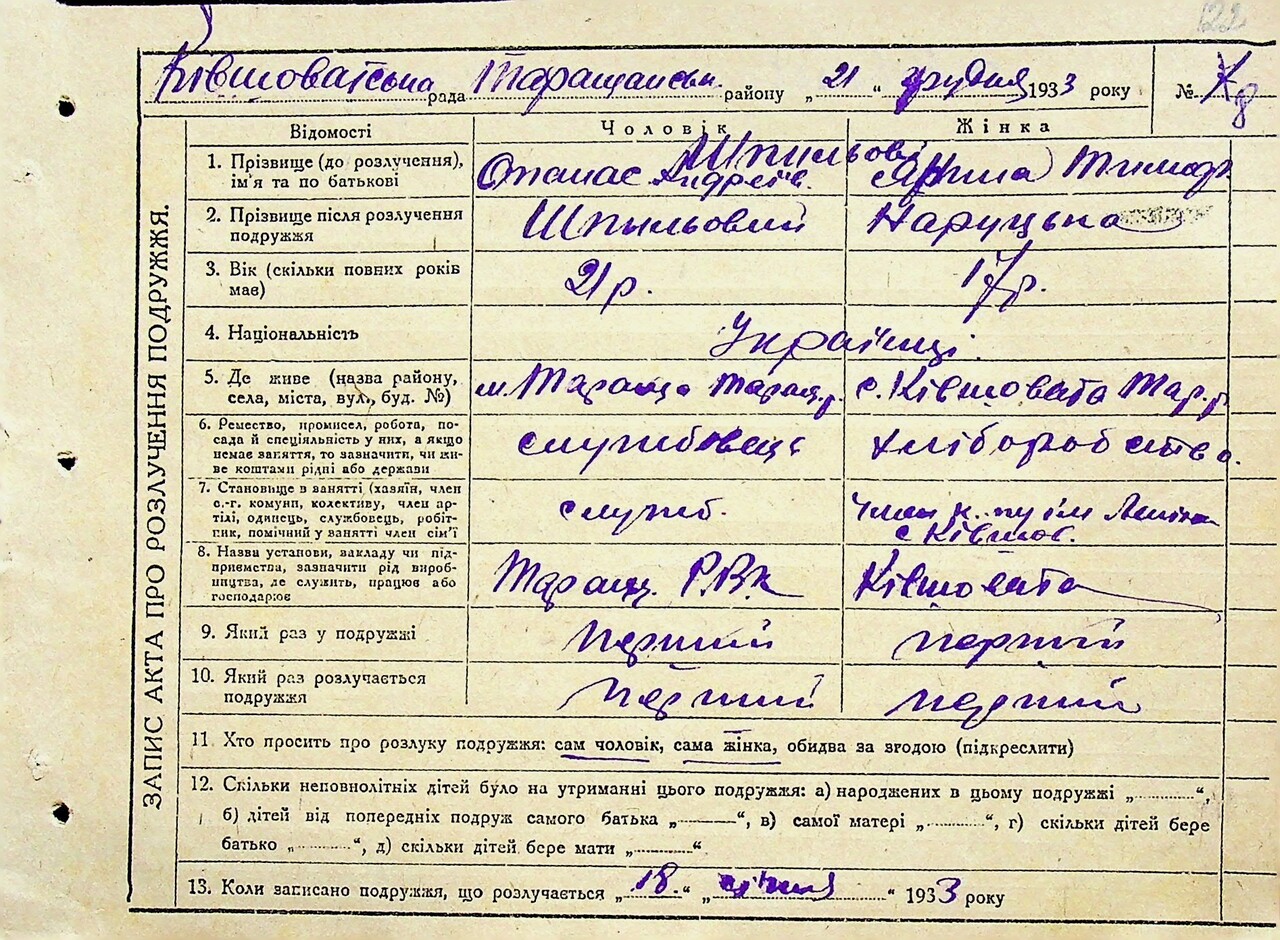 122
Ківшоватська рада Таращанськ. району „ 21 “ грудня 1933 року № 8
ЗАПИС АКТА ПРО РОЗЛУЧЕННЯ ПОДРУЖЖЯ.
Відомості Чоловік Жінка
Шпильові
1. Прізвище (до розлучення), Опанас Андреїв. Ярина Тимоф
ім'я та по батькові
2. Прізвище після розлучення Шпильовий Наруцька
подружжя
3. Вік (скільки повних років 21 р. 17 р.
має)
4. Національність Українці.
5. Де живе (назва району, м. Тараща Таращ. р. с. Ківшовата Тар. р.
села, міста, вул., буд. №)
6. Ремество, промисел, робота, по-
сада й спеціяльність у них, а якщо службовець хліборобство.
немає заняття, то зазначити, чи жи-
ве коштами рідні або держави
7. Становище в занятті (хазяїн, член
с.-г. комуни, колективу, член ар- служб. Член к. ім Леніна
тілі, одинець, службовець, робіт- с Ківшов.
ник, помічний у занятті член сім'ї
8. Назви установи, закладу чи під-
приємства, зазначити рід вироб- Таращ. Р.В.К Ківшовата
ництва, де служить, працює або
господарює
9. Який раз у подружжі перший перший
10. Який раз розлучається перший перший
подружжя
11 Хто просить про розлуку подружжя: сам чоловік, сама жінка, обидва за згодою (підкреслити)
12. Скільки неповнолітніх дітей було на утриманні цього подружжя: а) народжених в цьому подружжі „ “,
б) дітей від попередніх подруж самого батька „ “, в) самої матері „ “, г) скільки дітей бере
батько „ “, д) скільки дітей бере мати „ “
13. Коли записано подружжя, що розлучається „ 18. “ „ січня “ 1933 року